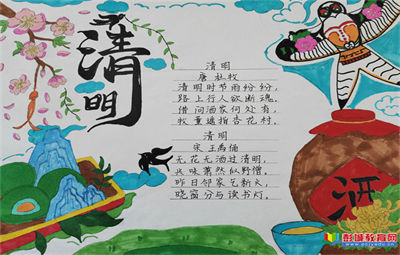 清明
清明
唐 杜牧
清明时节雨纷纷，
路上行人欲断魂。
借问酒家何处有，
牧童遥指杏花村。
清明
宋 王禹偁
无花无酒过清明，
兴味萧然似野僧。
昨日邻家乞新火，
晓窗分与读书灯。
酒
彭城教育网